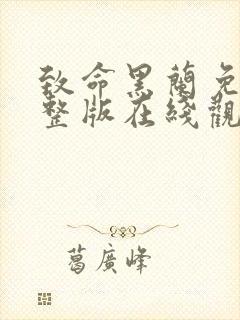 致命黑蘭免
整版在綫觀
葛廣峰